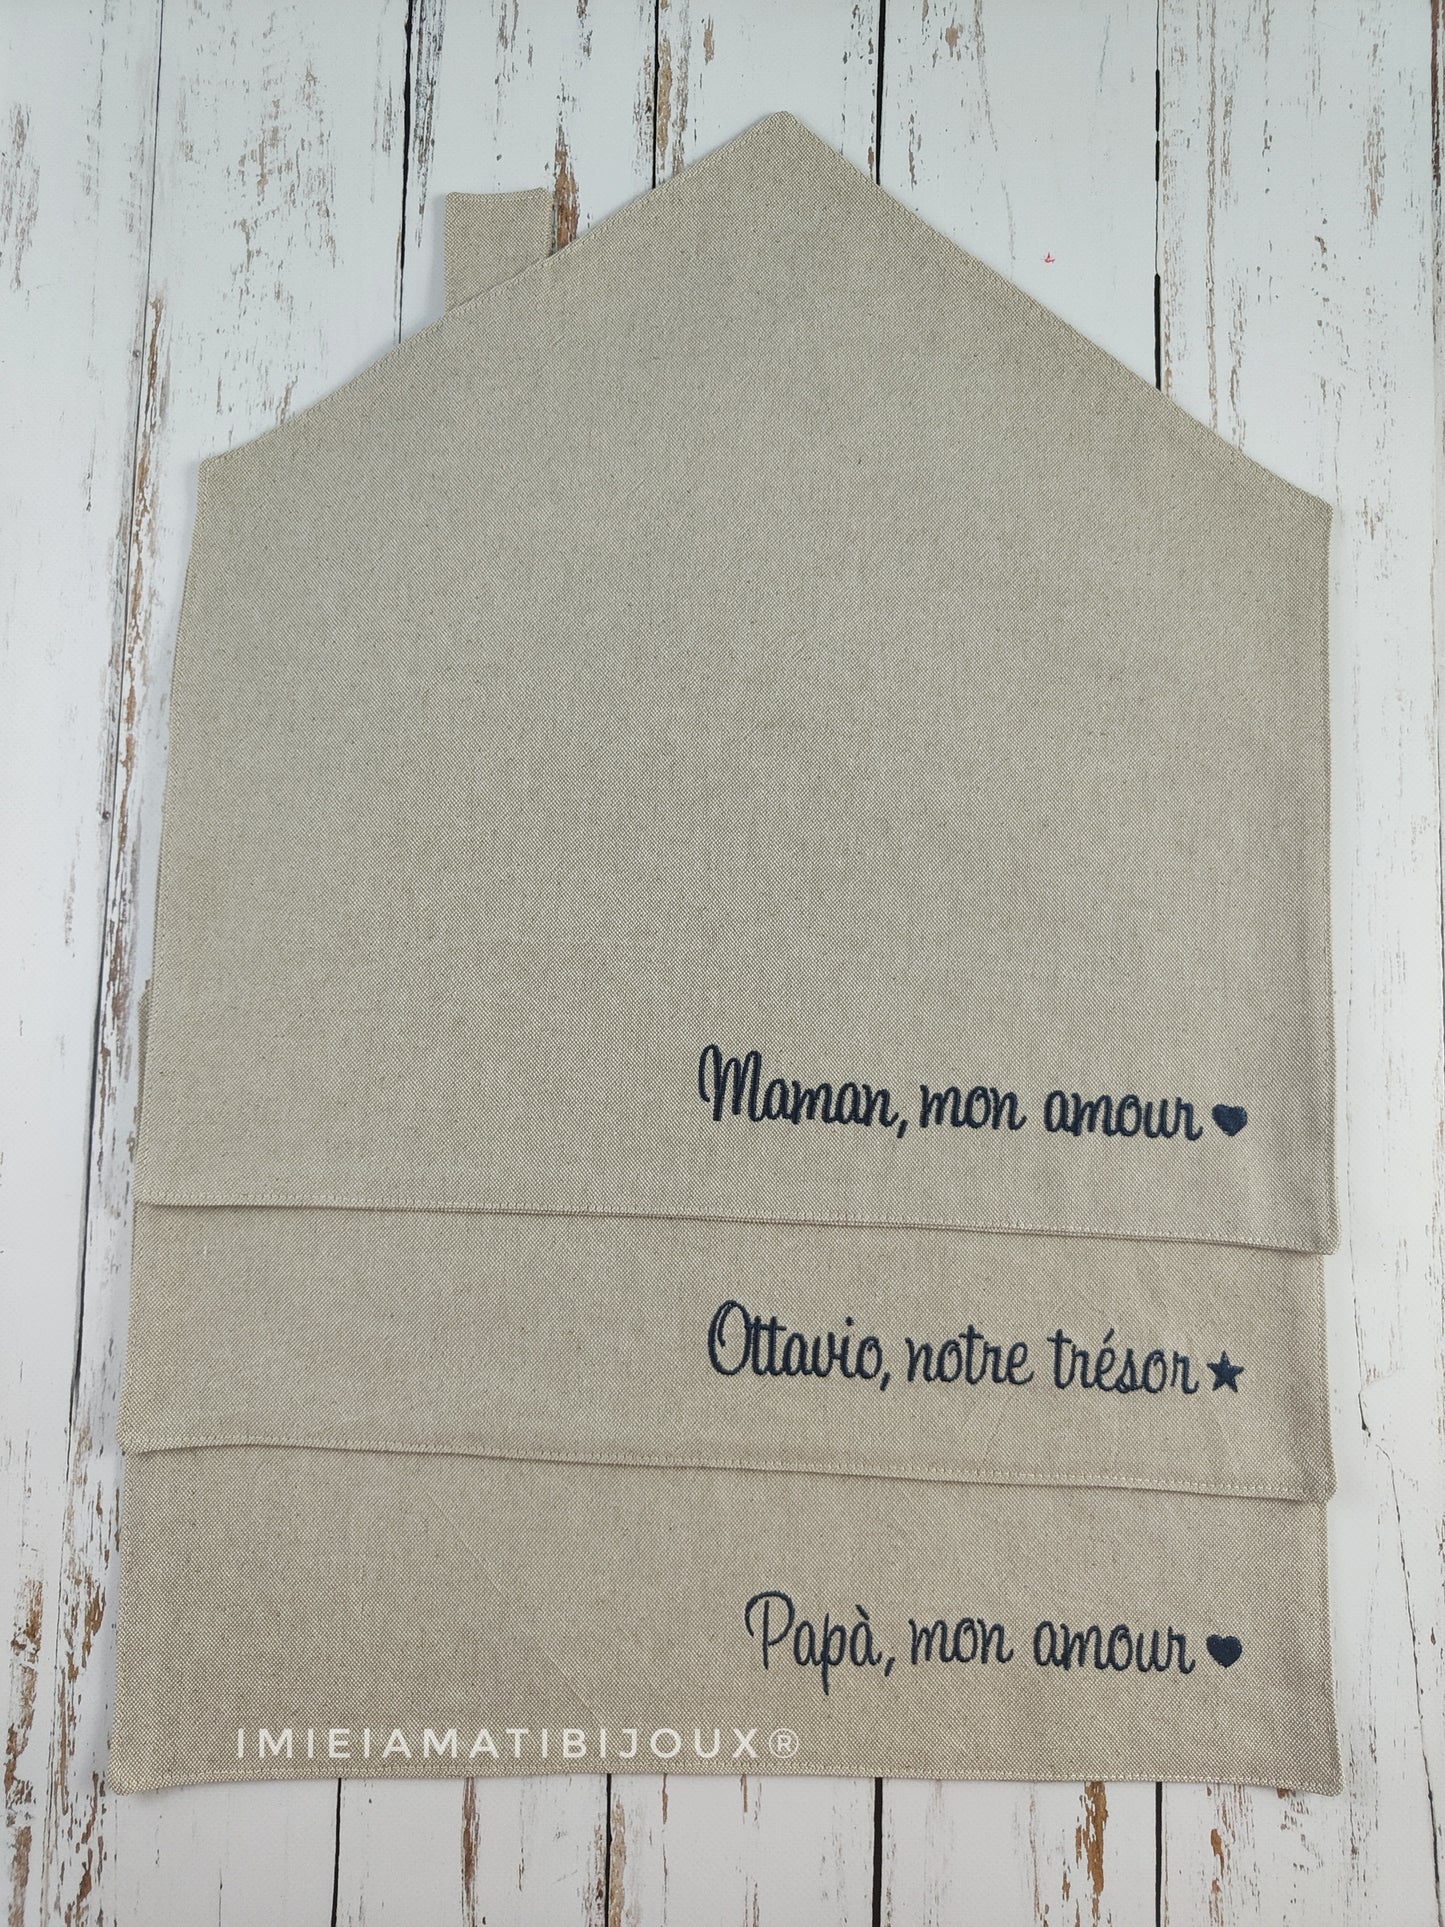 Maman, mon amour
Ottavio, notre trésor
Papà, mon amour
IMIEIAMATIBIJOUX®